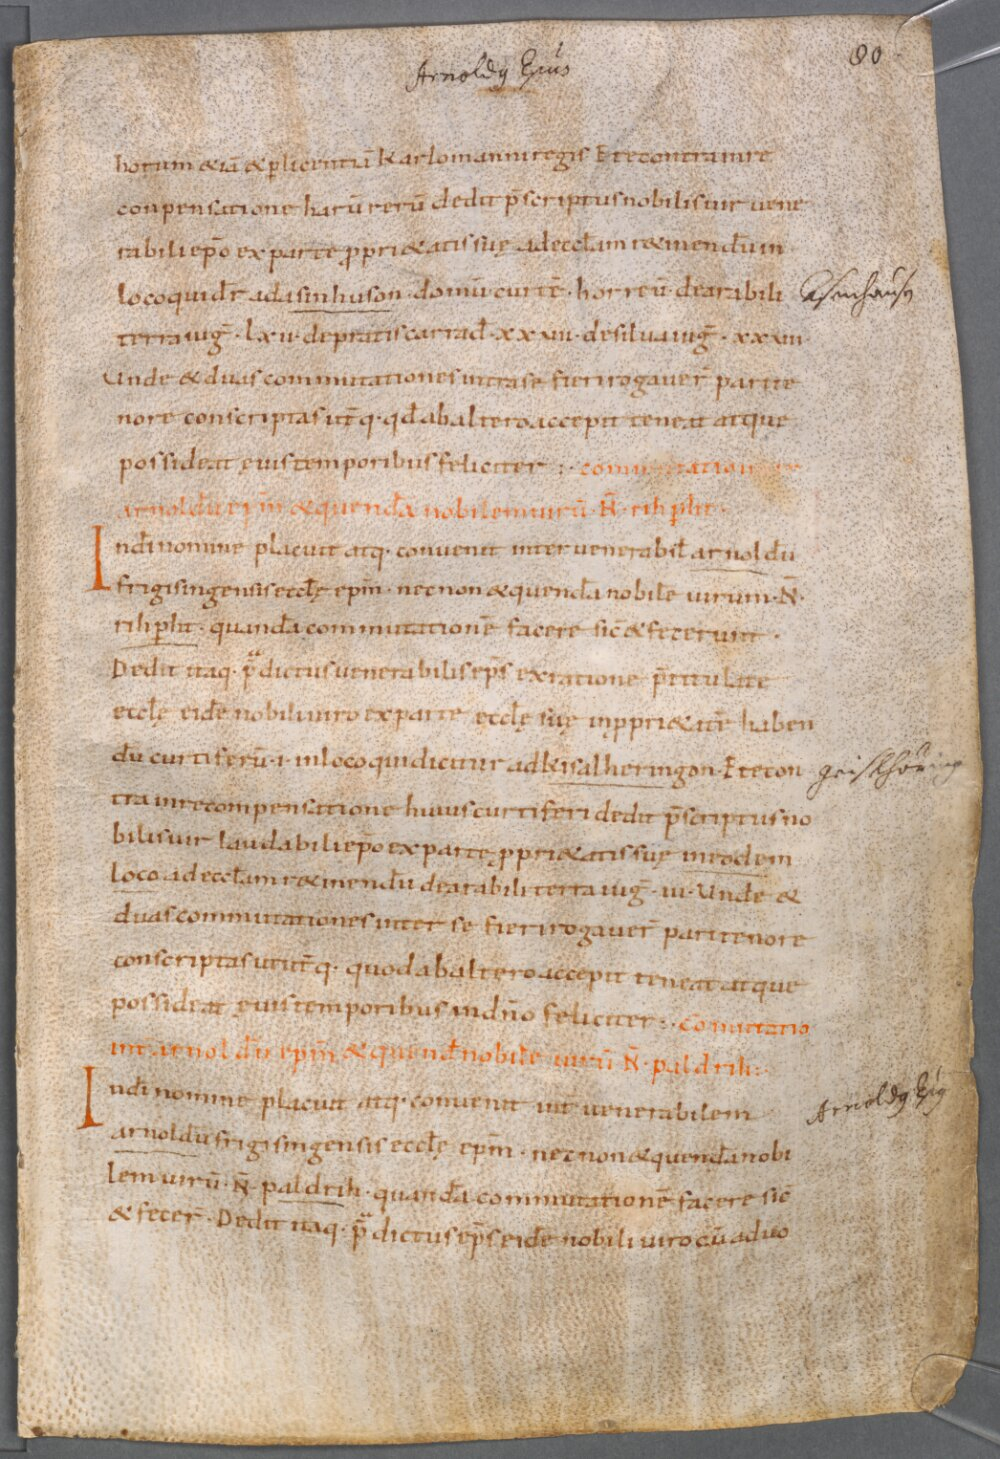 Arnoldꝰ Epūs
80
horum &iā &plicentiā Karlomanni regis Et econtra in re
conpensatione harū rerū dedit p̄scriptus nobilis uir vene
rabili ep̄o ex parte ꝓpri&atis suę ad eccl̄am r&inendūm
loco qui dr̄ adasinhuson · domū curtē · horreū · de arabili
Asenhausn
terra iuḡ · lxii · de pratis carrad̄ · xxxiii · de silua iuḡ · xxxiii ·
Unde & duas commutationes intra se fieri rogauer̄ pari te
nore conscriptas ut ut̄q · qd̄ ab altero accepit teneat atque
possideat ęuis temporibus feliciter :·
arnoldū ep̄m & quendā nobilem uirū · N̄ · rihpht ·
In dī nomine placuit atq · conuenit inter venerabil̄ arnoldū
frigisingensis eccl̄ę ep̄m · nec non & quendā nobilē uirum · N̄ ·
rihpht · quandā commutationē facere sic̄ & fecerunt ·
Dedit itaq · p̄dictus uenerabilis ep̄s ex ratione p̄titulatę
eccl̄ę eidē nobili uiro ex parte eccl̄ę suę in ꝓpri&atē haben
dū curtiferū · i · in loco qui dicitur ad kisalheringon · Et econ
Geislhöring
tra in recompensatione huius curtiferi dedit p̄scriptus no
bilis uir laudabili ep̄o ex parte ꝓpri&atis suę in eodem
loco ad eccl̄am r&inendū de arabili terra iuḡ · iii · Unde &
duas commutationes inter se fieri rogauer̄ pari tenore
conscriptas ut ut̄q · quod ab altero accepit teneat atque
possideat ęuis temporibus in dn̄o feliciter :· Comutatio
int̄ arnoldū ep̄m & quend̄ nobilē uirū N̄ · paldrih :·
In dī nomine placuit atq · conuenit int̄ uenerabilem
Arnoldꝰ Epūs
arnoldū frigisingensis eccl̄ę ep̄m · nec non & quendā nobi
lem uirū · N̄ · paldrih · quandā commutationē facere sic̄
& fecer̄ · Dedit itaq · p̄dictus ep̄s eidē nobili uiro cū aduo